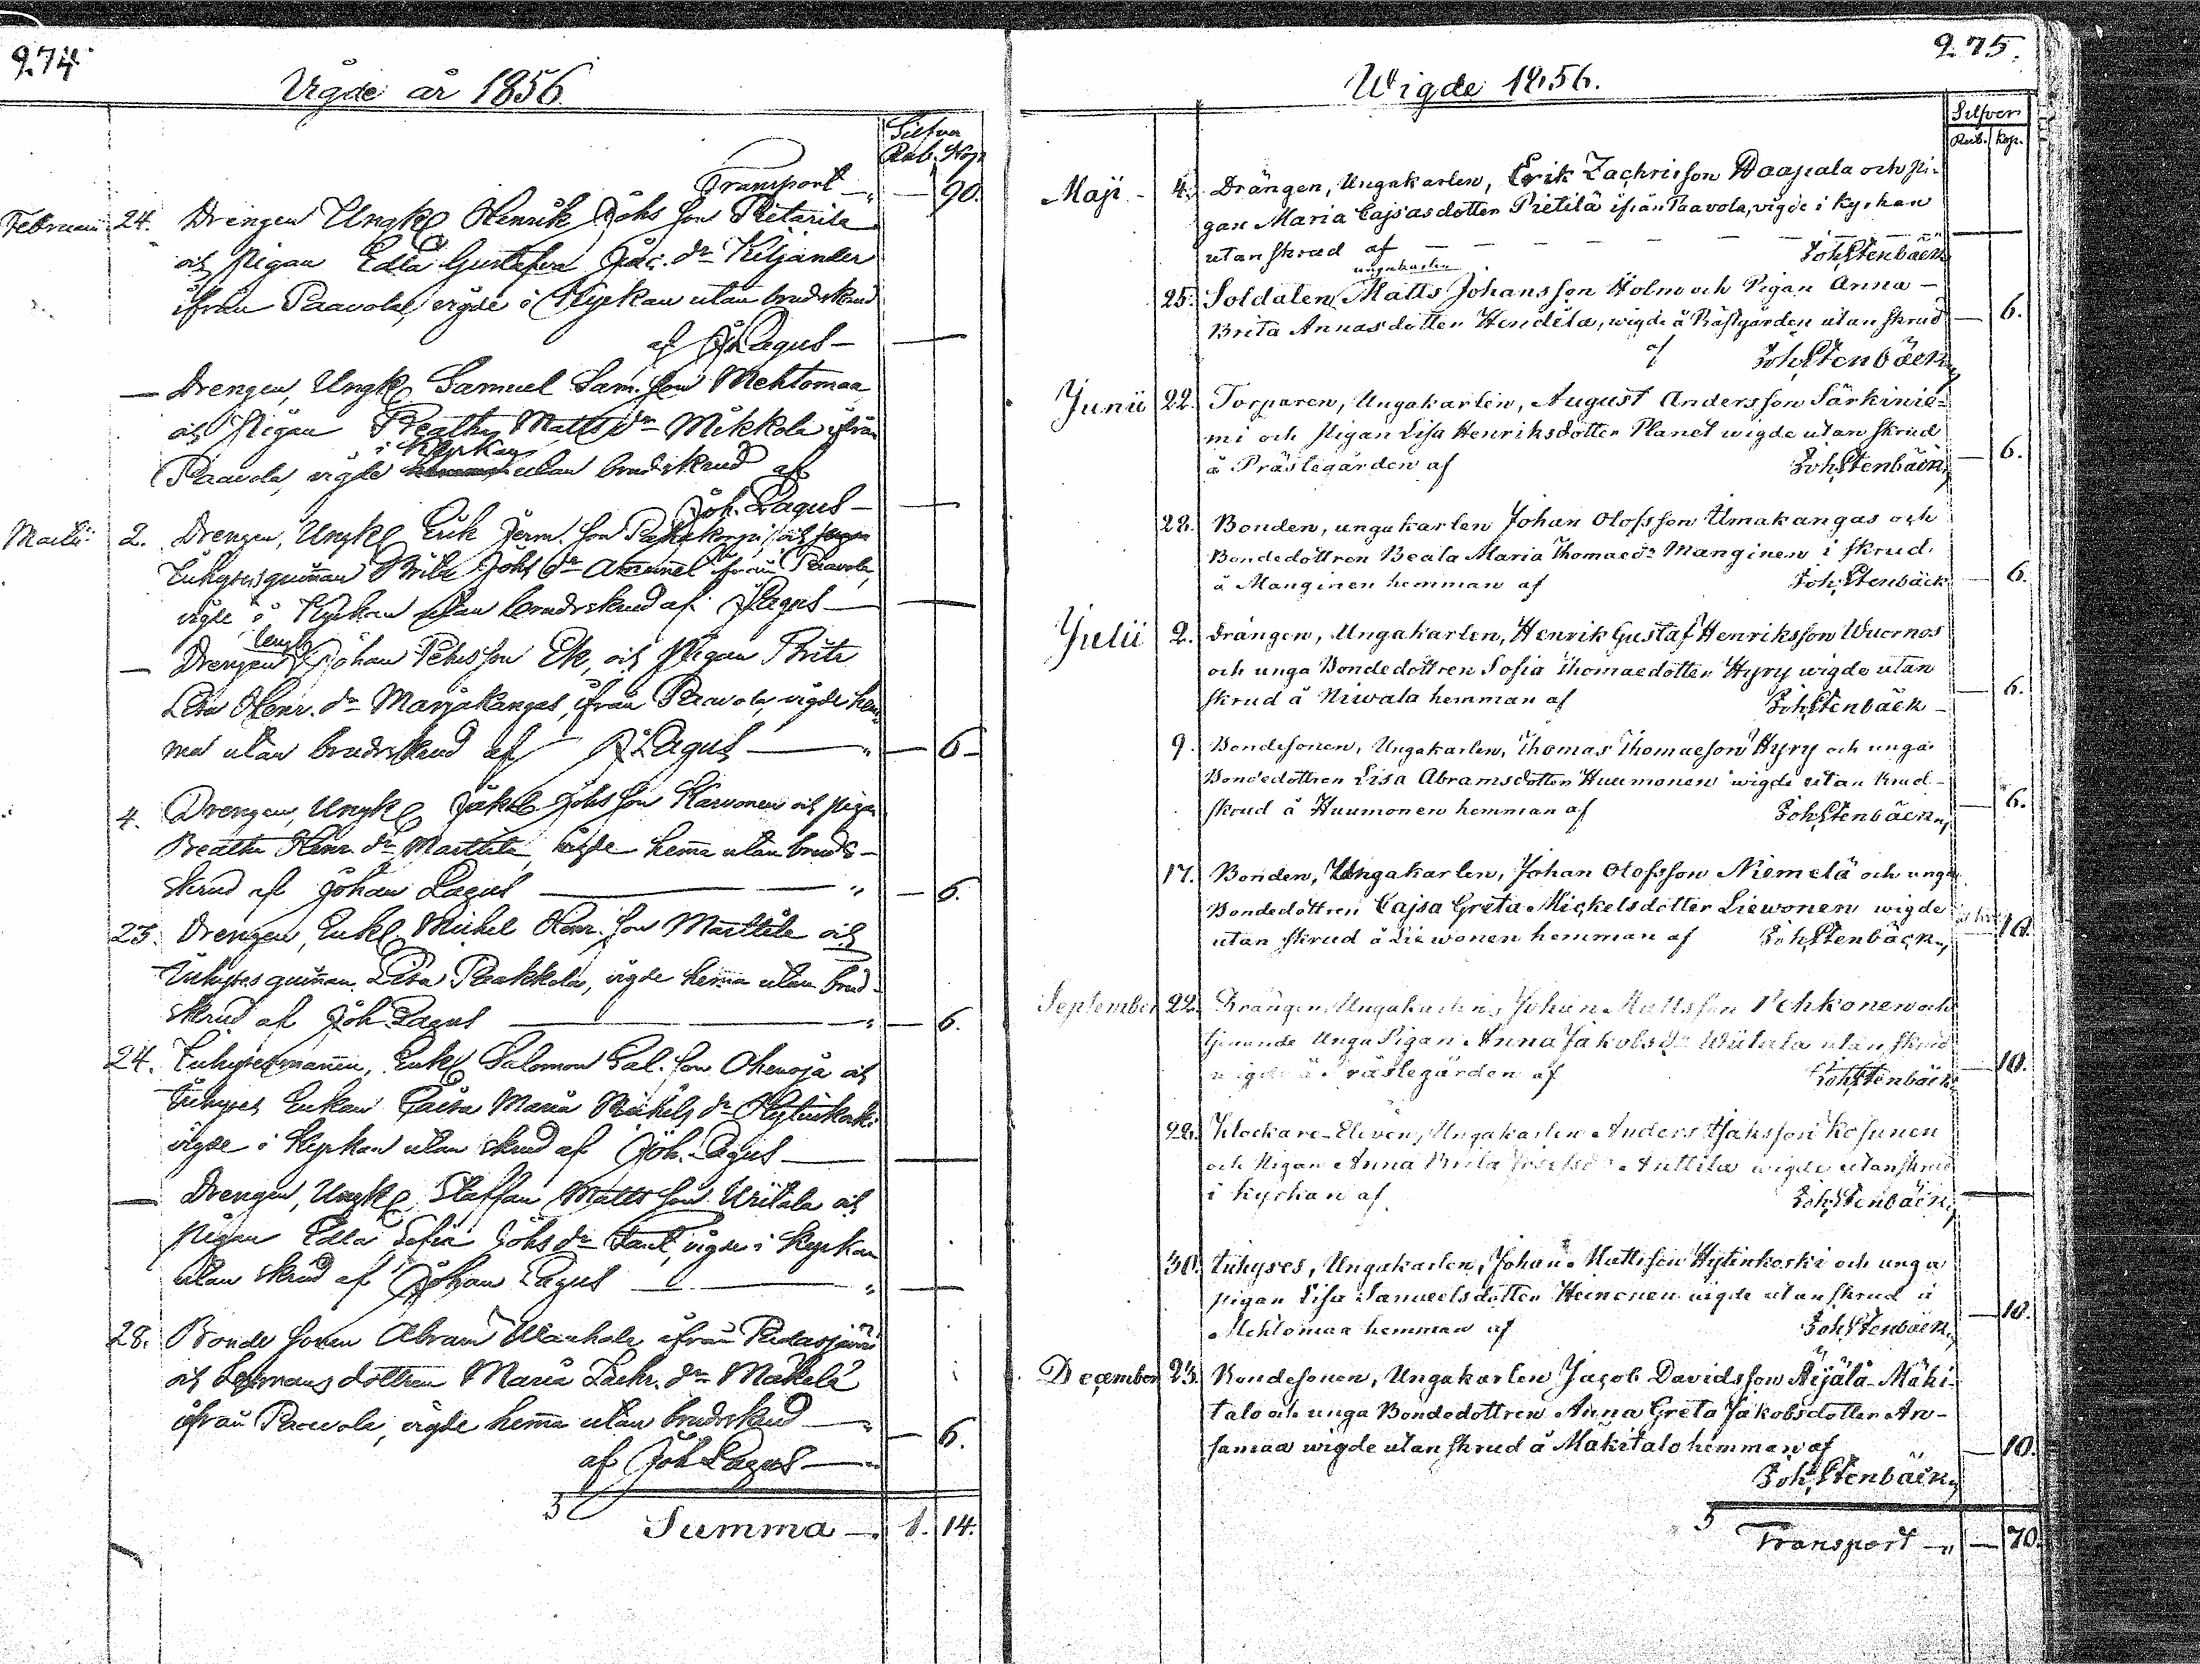 274
Vigde år 1856.
Silfver
Rub. Kop.
Transport — 90.
Februarii 24. Drengen Ungk. Henrik Johs son Pietarila
och Pigan Edla Gustafva Jac. dr Kiljander
ifrån Paavola, vigde i Kyrkan utan brudskrud
af Joh Lagus —
— Drengen, Ungk. Samuel Sam. son Mehtomaa
och Pigan Beatha Matts dr Mikkola ifrån
i Kyrkan
Paavola, vigde utan brudskrud af
Joh. Lagus —
Martii 2. Drengen, Ungk. Erik Jerm. son och
Inhyses quinnan Brita Johs dr ifrån Paavola,
vigde i Kyrkan utan brudskrud af J Lagus —
— Drengen Johan Petersson Ek, och Pigan Brita
Lisa Henr. dr Marjakangas, ifrån Paavola, vigde hem
ma utan brudskrud af J Lagus — 6 —
4. Drengen, Ungk. Jakob Johs son Karvonen och pigan
Beatha Henr. dr Marttila, vigde hema utan bruds-
skrud af Johan Lagus — 6.
23. Drengen, Enkl. Michel Henr. son Marttila och
Inhyses quinnan Lisa Raakkola, vigde hema utan brud-
skrud af Joh Lagus — 6.
24. Inhysesmannen, Enkl Salomon Sal. son Ohenoja och
Inhyses Enkan Caisa Maria Michels dr Hytinkoski
vigde i Kyrkan utan skrud af Joh. Lagus —
— Drengen, Ungk. Staffan Matts son Uritala och
Pigan Edla Sofia Johs dr Fant, vigde i Kyrkan
utan skrud af Johan Lagus —
28. Bonde sonen Abram Wanhala ifrån Pudasjärvi
och dottren Maria Zachr. dr Mäkelä
ifrån Paavola, vigde hema utan brudskrud — 6.
af Joh Lagus —
Summa — 1. 14.
275.
Wigde 1856.
Silfver
Rub. Kop.
Maji 4. Drängen, Ungakarlen, Erik Zachrisson Haapala och pi-
gan Maria Cajsasdotter Pietilä ifrån Paavola, vigde i kyrkan
utan skrud af — JohStenbäck
ungakarlen
25. Soldaten Matts Johansson Holm och Pigan Anna —
Brita Annasdotter Hendela, wigde å Prästgården utan skrud — 6.
af JohStenbäck
Junii 22. Torparen, Ungakarlen, August Andersson Särkinie-
mi och pigan Lisa Henriksdotter Planet wigde utan skrud
å Prästegården af JohStenbäck — 6.
28. Bonden, ungakarlen Johan Olofsson Umakangas och
Bondedottren Beata Maria Thomaedr Manginen i skrud
å Manginen hemman af JohStenbäck — 6.
Julii 2. Drängen, Ungakarlen, Henrik Gustaf Henriksson Wuornos
och unga Bondedottren Sofia Thomaedotter Hyry wigde utan
skrud å Niwala hemman af JohStenbäck — 6.
9. Bondesonen, Ungakarlen, Thomas Thomaeson Hyry och unga
Bondedottren Lisa Abramsdotter Huumonen wigde utan brud-
skrud å Huumonen hemman af JohStenbäck — 6.
17. Bonden, Ungakarlen, Johan Olofsson Niemelä och unga
Bondedottren Cajsa Greta Mickelsdotter Liewonen wigde
utan skrud å Liewonen hemman af JohStenbäck 10.
September 22. Drängen, Ungakarlen, Johan Mattsson Pehkonen och
tjenande Unga Pigan Anna Jakobs dr Wiitala utan skrud
wigde å Prästegården af JohStenbäck — 10.
28. Klockare-Eleven, Ungakarlen Anders Isaksson Kosunen
och Pigan Anna Brita Josefs dr Anttila wigde utan skrud
i kyrkan af JohStenbäck —
30. Inhyses, Ungakarlen, Johan Mattsson Hytinkoski och unga
pigan Lisa Samuelsdotter Heinonen wigde utan skrud å
Mehtomaa hemman af JohStenbäck — 10.
December 23. Bondesonen, Ungakarlen Jacob Davidsson Äijälä-Mäki-
talo och unga Bondedottren Anna Greta Jakobsdotter An-
samaa wigde utan skrud å Mäkitalo hemman af — 10.
JohStenbäck
Transport — 70.